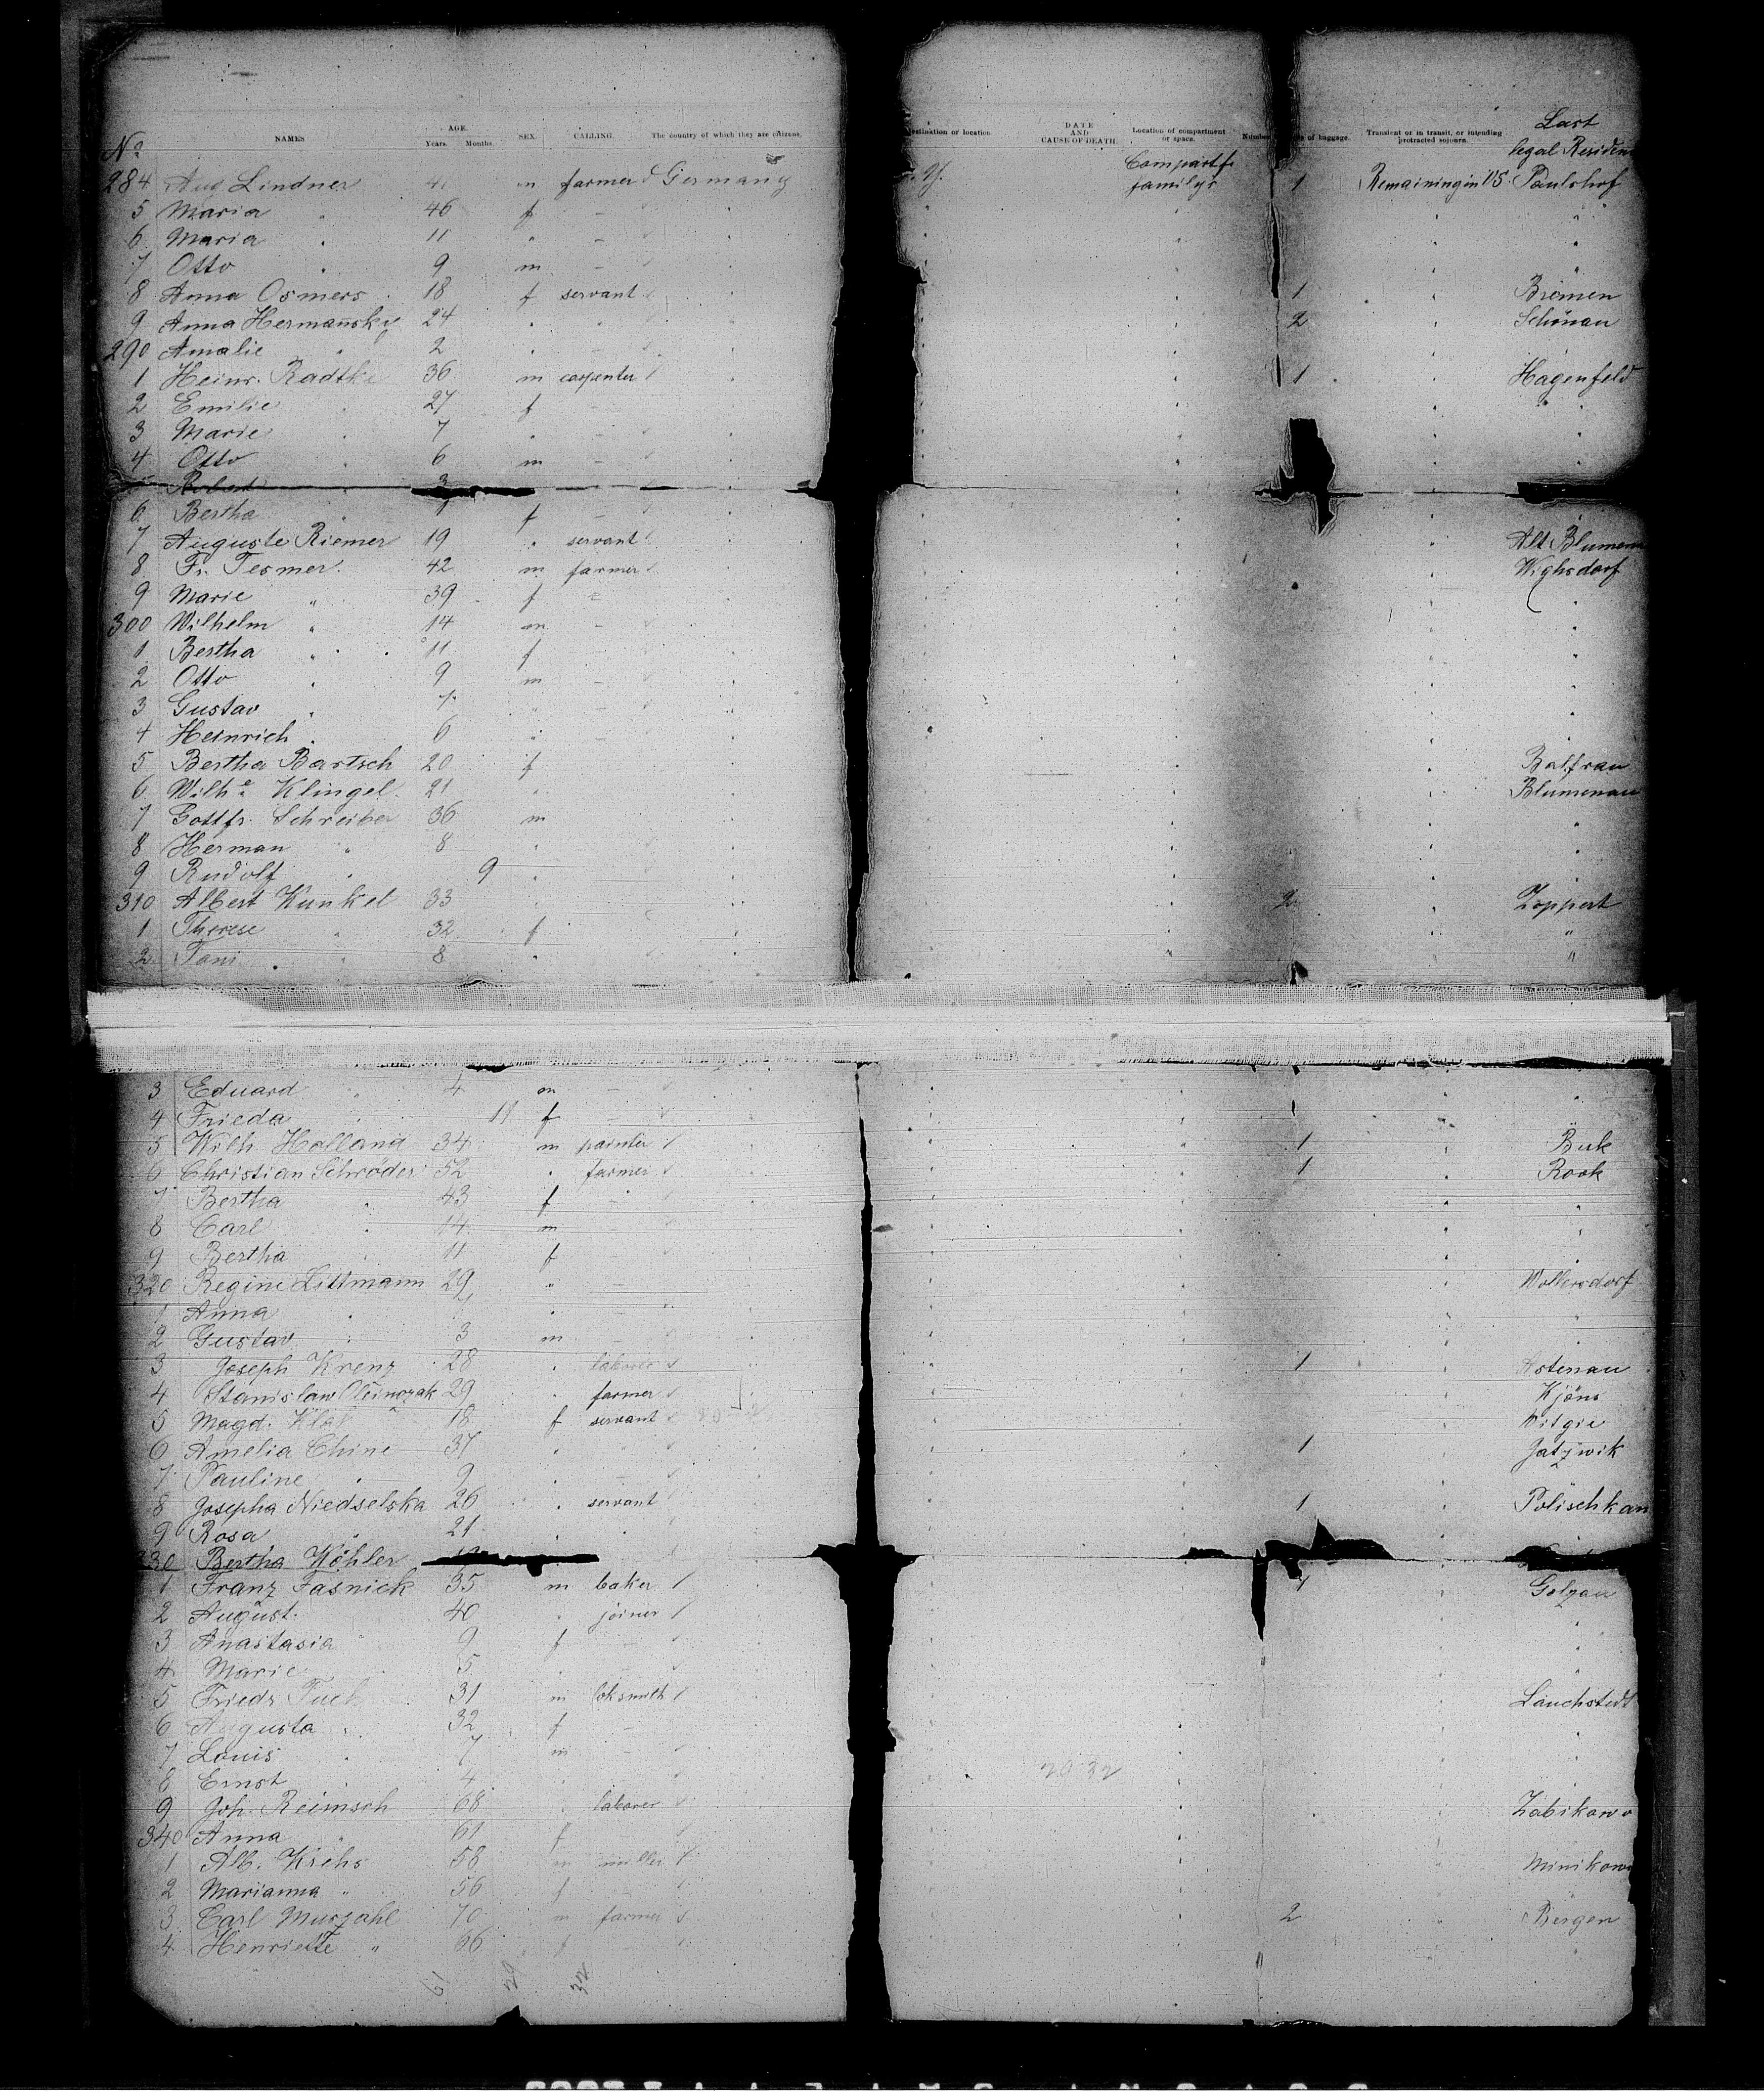 No NAMES AGE. Years. Months. SEX CALLING. The country of which they are citizens. destination or location. DATE AND CAUSE OF DEATH. Location of compartment or space. Number of baggage. Transient or in transit, or intending protracted sojourn. Last legal Residen
284 Aug Lindner m farmer Germany Y. Compart f. familys 1 Remaining in US Paulshof
5 Maria " 46 f -
6 Maria " 11 " -
7 Otto " 9 m -
8 Anna Osmers 18 f servant 1 Bremen
9 Anna Hermansky 24 " " 2 Schönau
290 Amalie " 2 " -
1 Heinr. Radtke 36 m carpenter 1 Hagenfeld
2 Emilie " 27 f -
3 Marie " 7 " -
4 Otto " 6 m -
5 Robert " 3
6 Bertha " f -
7 Auguste Riemer 19 " servant Alt Blumen
8 Fr. Tesmer 42 m farmer
9 Marie " 39 f -
300 Wilhelm " 14 m -
1 Bertha " 11 f -
2 Otto " 9 m -
3 Gustav " 7 " -
4 Heinrich " 6 " -
5 Bertha Bartsch 20 f Balfrau
6 Wilhe Klingel 21 " Blumenau
7 Gottfr. Schreiber 36 m "
8 Herman " 8 " "
9 Rudolf " 9 "
310 Albert Kunkel 33 " 2 Zoppert
1 Therese " 32 f "
2 Tani " 8 " "
3 Eduard " 4 m - "
4 Frieda " 11 f
5 Wilh Holland 34 m painter 1 Buk
6 Christian Schröder 52 " farmer 1 Rook
7 Bertha " 43 f - "
8 Carl " 14 m "
9 Bertha " 11 f - "
320 Regine Littmann 29 " - Wollersdorf
1 Anna " "
2 Gustav " 3 m -
3 Joseph Krenz 28 " laborer 1 Astenau
4 Stanislaw 29 " farmer Kjöns
5 Magd. 18 f servant Witgie
6 Amelia Chine 37 " 1 Jatzwik
7 Pauline " 9 " -
8 Josepha Niedselska 26 " servant 1 Polischkan
9 Rosa " 21 " "
330 Bertha Köhler
1 Franz Fasnick 35 m baker 1 Golzau
2 August " 40 " joiner "
3 Anastasia " 9 f - "
4 Marie " 5 " - "
5 Friedr 31 m loksmith Lauchstedt
6 Augusta " 32 f - "
7 Louis " 7 m - "
8 Ernst " 4 " "
9 Joh. Reimsch 68 " laborer Zabikowo
340 Anna " 61 f
1 Alb. Krehs 58 m miller Minikow
2 Marianna " 56 f -
3 Carl Murzahl 70 m farmer 2 Bergen
4 Henriette " 66 f - "
61 29 32